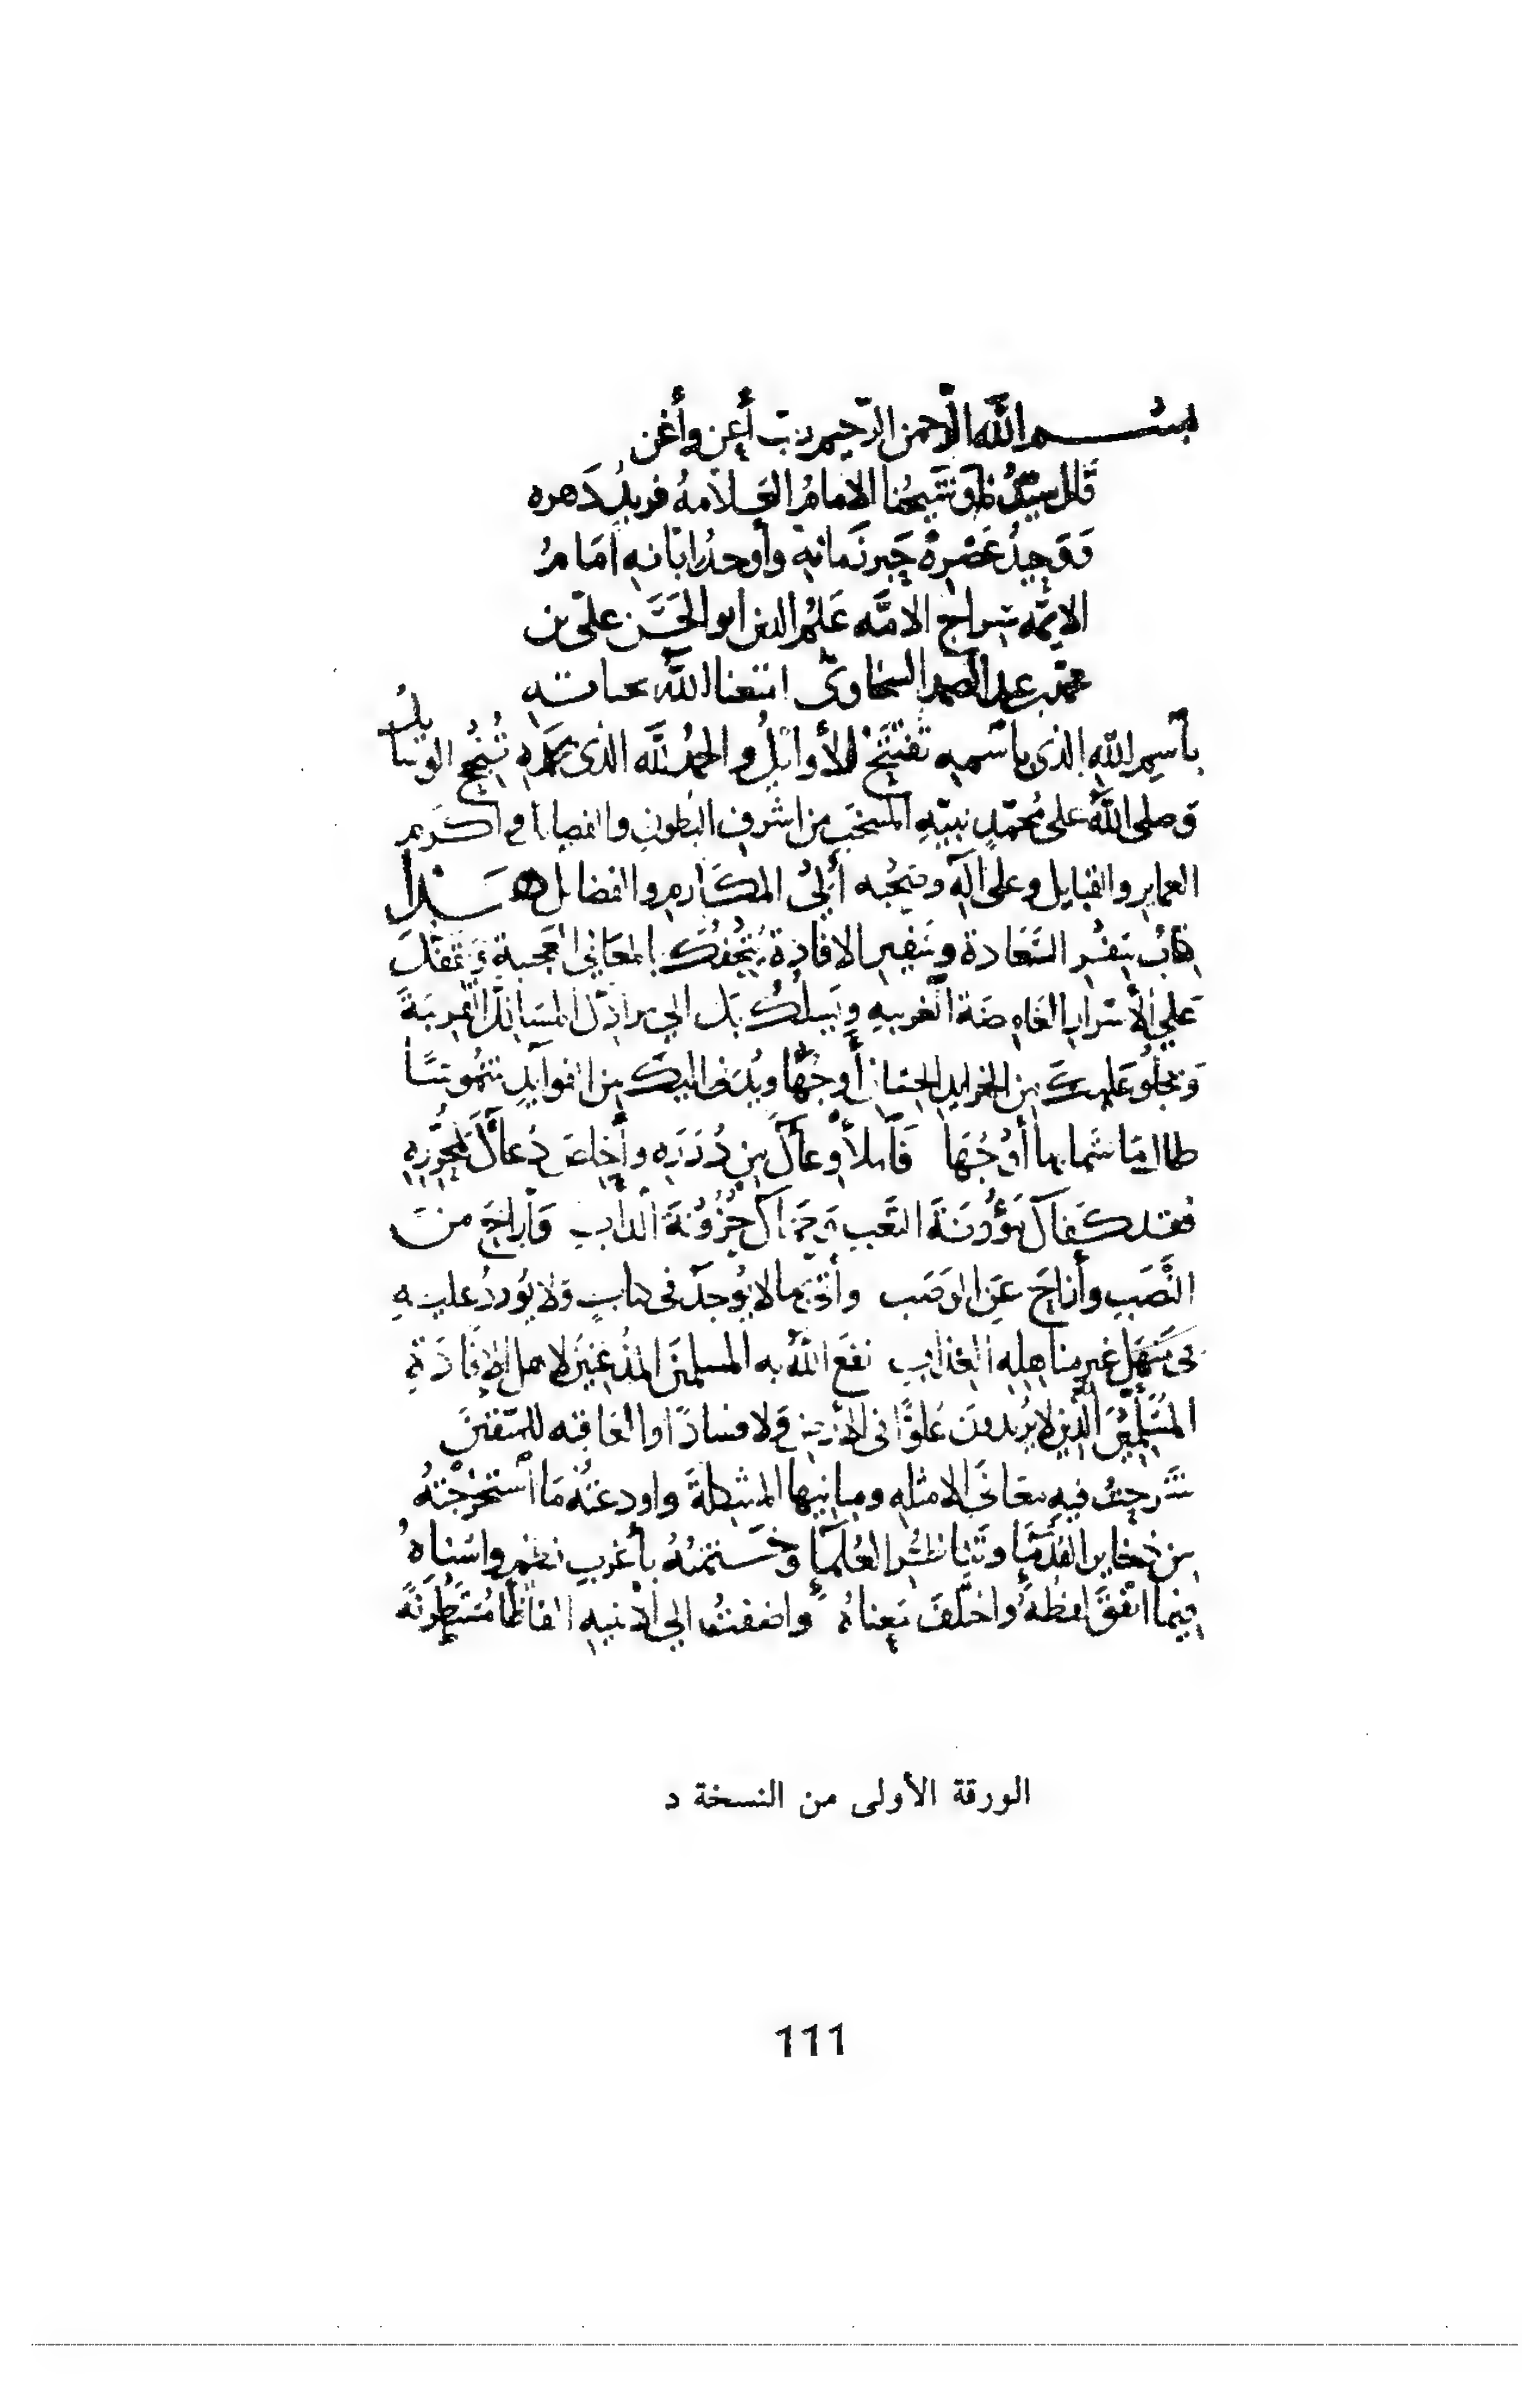 بسم الله الرحمن الرحيم رب أعن وأغن
قال سيدنا وشيخنا الامام العلامة فريد دهره
ووحيد عصره حبر زمانه وأوحد ابانه امام
الايمه سراج الامه علم الدين ابو الحسن علي بن
محمد بن عبد الصمد السخاوي امتعنا الله بحياته
باسم الله الذي باسمه تفتتح الأوايل والحمد لله الذي بحمده تنجح الوسايل
وصلى الله على محمد نبيه المنتخب من اشرف البطون والفصايل واكرم
العماير والقبايل وعلى اله وصحبه أولي المكارم والفضايل هذا
كتاب سفر السعادة وسفير الافادة يتحفك بالمعاني العجيبة ويقفك
على الأسرار الغامضة الغريبه ويسلك بك الى المسائل القريبة
ويجلو عليك من الخرايد الحسان أوجها ويدنى اليك من الفوايد شموسا
طالما شما بها أوجها فاملأ وعاك من درره وأخلص دعاك لمحرره
فقد كفاك مؤونة التعب وحماك حزونة الداب وأراح من
النصب وأزاح عن الوصب وأتى بما لا يوجد في كتاب ولا يورد عليه
في منهل غير مناهله العذاب نفع الله به المسلمين المذعنين لاهل الافادة
المسلمين الذين لا يريدون علوا في الارض ولا فسادا والعاقبه للمتقين
شرحت فيه معاني الامثله ومبانيها المشكلة واودعته ما استخرجته
من ذخاير القدماء وتناظر العلماء وختمته بأغرب نظم واسناه
فيما اتفق لفظه واختلف معناه واضفت الى ابنيه الفاظا مستطرفة
الورقة الأولى من النسخة د
111